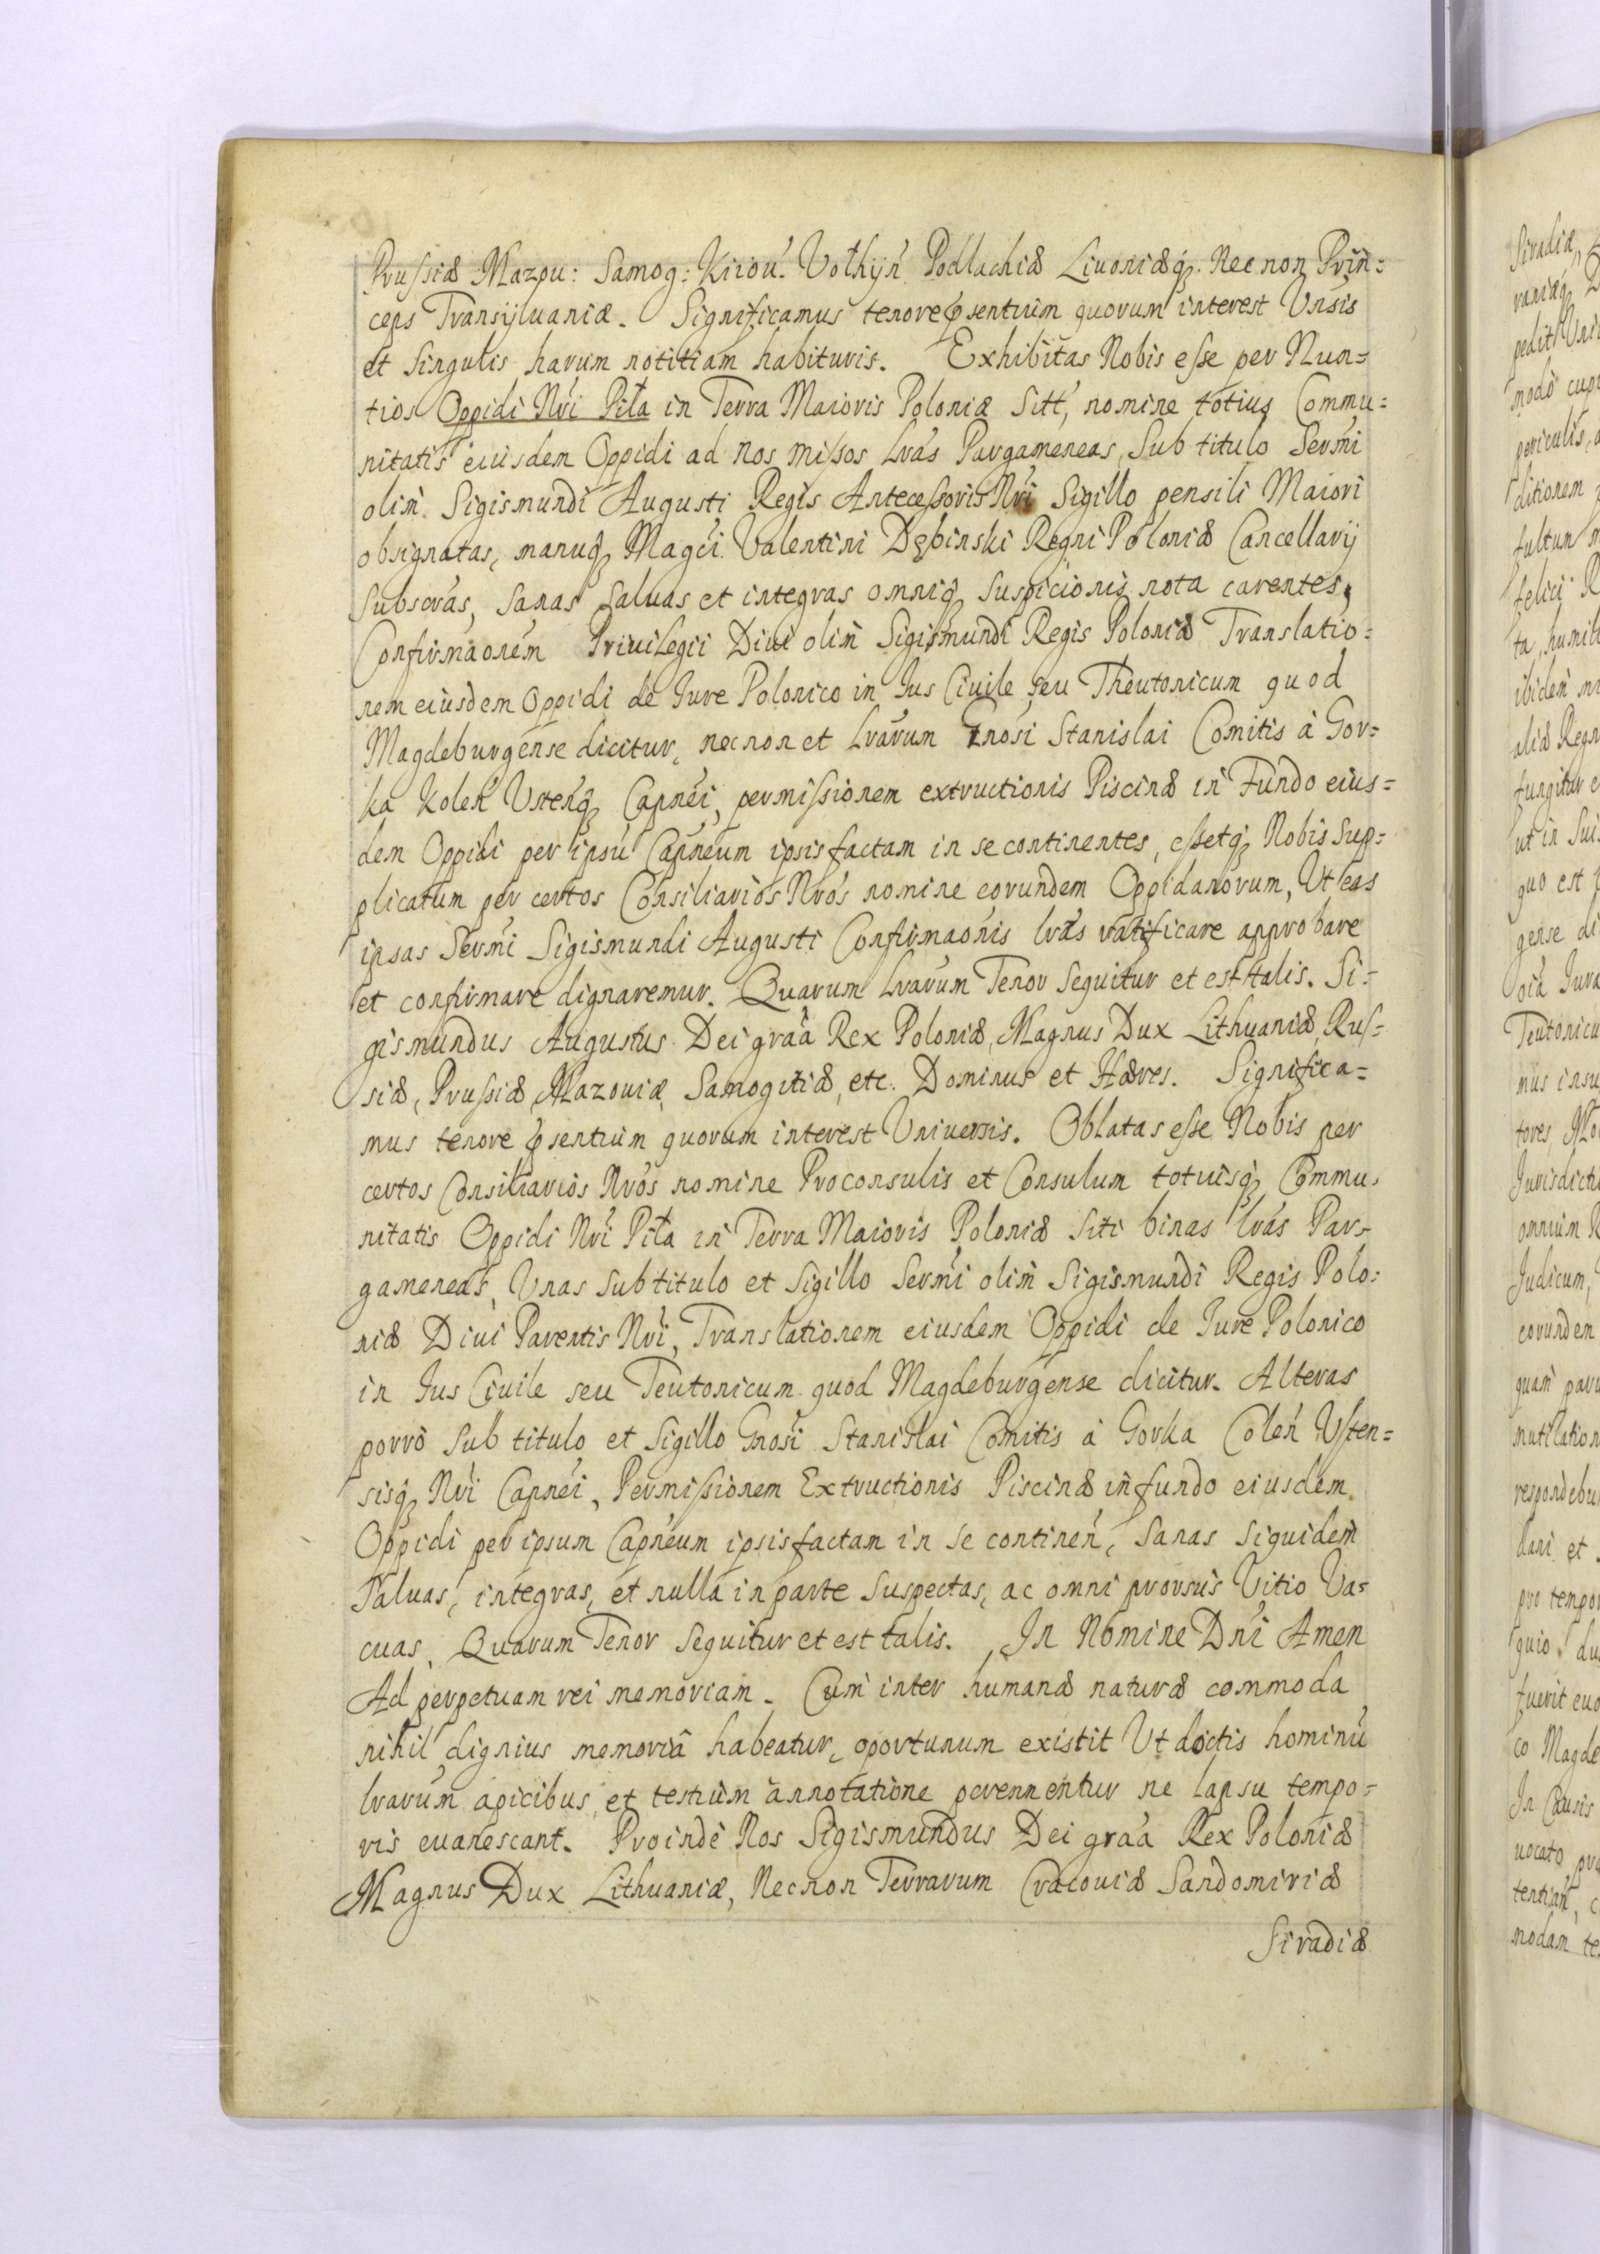 Prussiæ Mazou: Samog: Kiiou. Vołhyń Podlachiæ Liuoniæq. Necnon Prin=
ceps Transyluaniæ. Significamus tenore psentium quorum interest Vnsis
et singulis harum notitiam habituris. Exhibitas Nobis esse per Nun=
tios Oppidi Nri Piła in Terra Maioris Poloniæ Siti, nomine totius Commu=
nitatis eiusdem Oppidi ad nos missos Lras Pargameneas, Sub titulo Sermi
olim Sigismundi Augusti Regis Antecessoris Nri Sigillo pensili Maiori
obsignatas, manuq Magci Valentini Dębinski Regni Poloniæ Cancellarij
subscras, sanas saluas et integras omniq suspicionis nota carentes,
Confirmaonem Priuilegii Diui olim Sigismundi Regis Poloniæ Translatio=
nem eiusdem Oppidi de Iure Polonico in Ius Ciuile seu Theutonicum quod
Magdeburgense dicitur, necnon et Lrarum Gnosi Stanislai Comitis à Gor=
ka Kolen Ustenq Capnei, permissionem extructionis Piscinæ in Fundo eius=
dem Oppidi per ipsu Capneum ipsis factam in se continentes, essetq Nobis sup=
plicatum per certos Consiliarios Nros nomine eorundem Oppidanorum, Ut eas
ipsas Sermi Sigismundi Augusti Confirmaonis lras ratificare approbare
et confirmare dignaremur. Quarum Lrarum Tenor sequitur et est talis. Si=
gismundus Augustus Dei graa Rex Poloniæ, Magnus Dux Lithuaniæ, Rus=
siæ, Prussiæ, Mazouiæ, Samogitiæ, etc. Dominus et Hæres. Significa=
mus tenore psentium quorum interest Uniuersis. Oblatas esse Nobis per
certos Consiliarios Nros nomine Proconsulis et Consulum totiusq Commu=
nitatis Oppidi Nri Piła in Terra Maioris Poloniæ siti binas lras Par=
gameneas, Unas sub titulo et sigillo Sermi olim Sigismundi Regis Polo=
niæ Diui Parentis Nri, Translationem eiusdem Oppidi de Iure Polonico
in Ius Ciuile seu Teutonicum quod Magdeburgense dicitur. Alteras
porrò sub titulo et sigillo Gnosi Stanislai Comitis à Gorka Colen Usten=
sisq Nri Capnei, Permissionem Extructionis Piscinæ in fundo eiusdem
Oppidi per ipsum Capneum ipsis factam in se continen, sanas siquidem
saluas, integras, et nulla in parte suspectas, ac omni prorsus Vitio Va=
cuas, Quarum Tenor sequitur et est talis. In Nomine Dni Amen
Ad perpetuam rei memoriam. Cum inter humanæ naturæ commoda
nihil dignius memoriâ habeatur, oportunum existit Ut doctis hominu
lrarum apicibus, et testium annotatione perennentur ne lapsu tempo=
ris euanescant. Proinde Nos Sigismundus Dei graa Rex Poloniæ
Magnus Dux Lithuaniæ, Necnon Terrarum Cracouiæ Sandomiriæ
Siradiæ